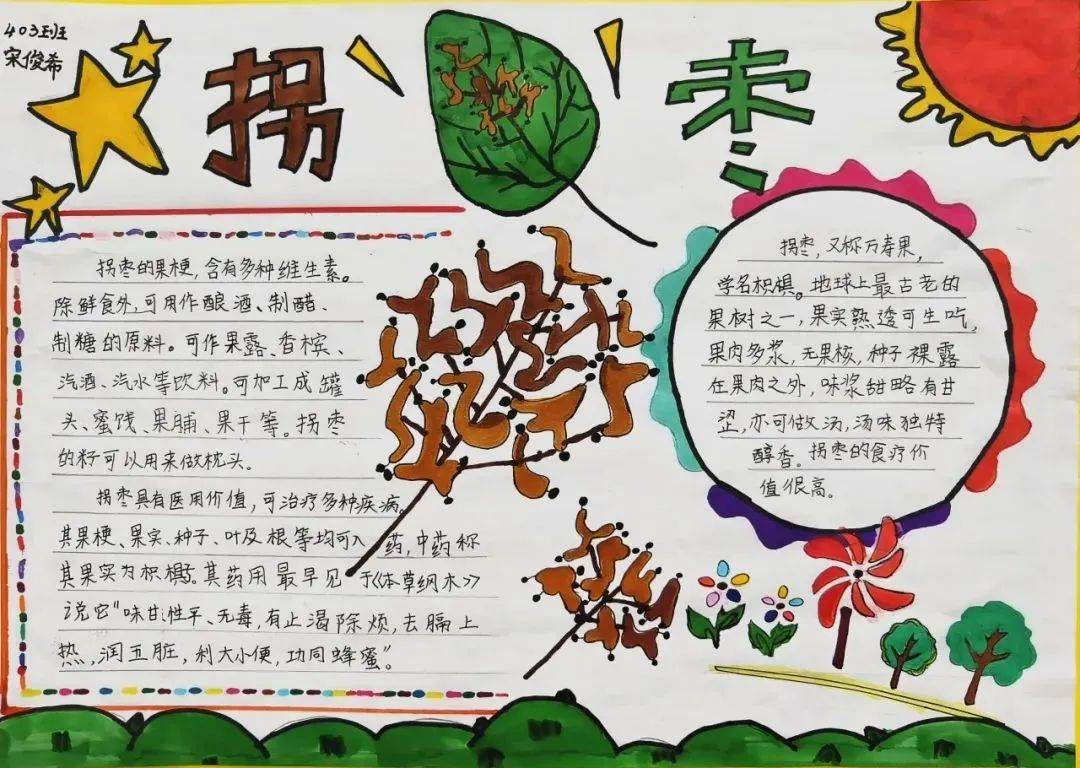 403班
宋俊希
拐枣
拐枣的果梗,含有多种维生素。
除鲜食外,可用作酿酒、制醋、
制糖的原料。可作果露、香槟、
汽酒、汽水等饮料。可加工成罐
头、蜜饯、果脯、果干等。拐枣
的籽可以用来做枕头。
拐枣具有医用价值,可治疗多种疾病。
其果梗、果实、种子、叶及根等均可入药,中药称
其果实为枳椇子。其药用最早见于《本草纲木》
说它“味甘性平、无毒,有止渴除烦,去膈上
热,润五脏,利大小便,功同蜂蜜”。
拐枣,又称万寿果,
学名枳椇。地球上最古老的
果树之一,果实熟透可生吃,
果肉多浆,无果核,种子裸露
在果肉之外,味浆甜略有甘
涩,亦可做汤,汤味独特
醇香。拐枣的食疗价
值很高。